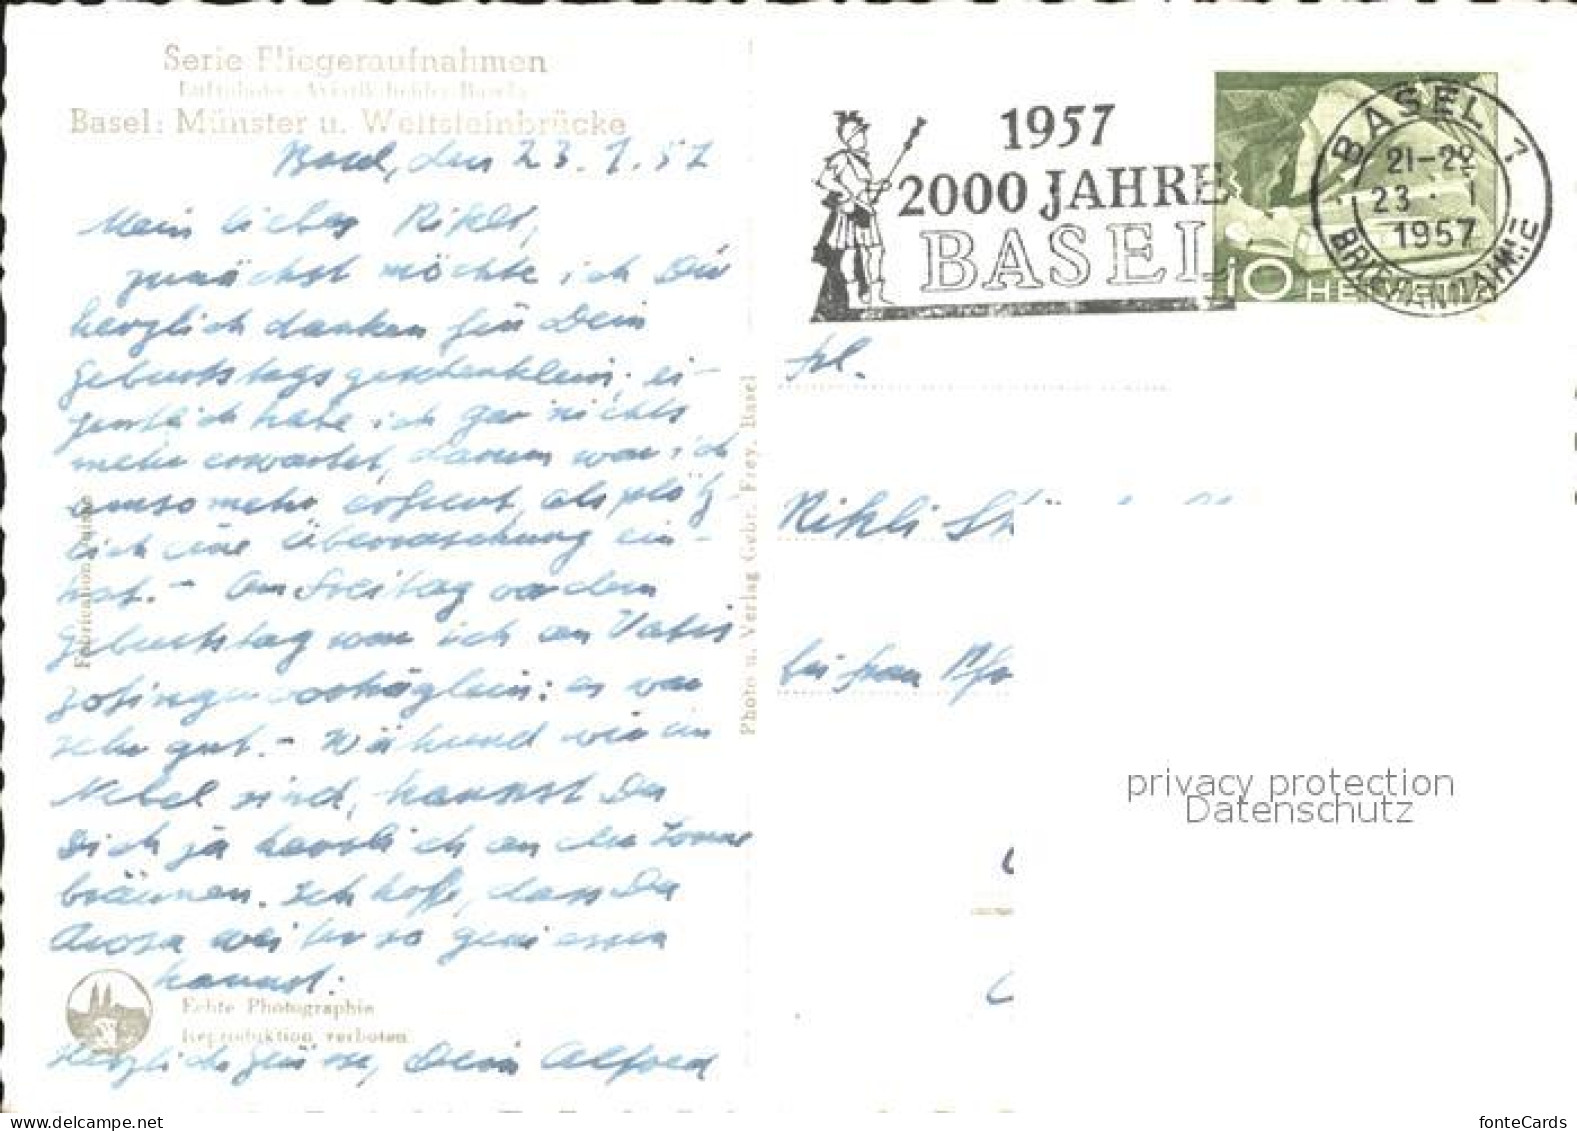 Serie Fliegeraufnahmen
Basel: Münster u. Wettsteinbrücke
Basel, den 23.1.57
Mein liebes Rikli,
zunächst möchte ich Dir
herzlich danken für Dein
Geburtstagsgeschenklein; ei-
gentlich habe ich gar nichts
mehr erwartet, darum war ich
umso mehr erfreut, als plötz-
lich eine Überraschung ein-
traf. - Am Freitag vor dem
Geburtstag war ich an
es war
sehr gut. - Während wir im
Nebel sind, kannst Du
Dich ja herrlich an der Sonne
bräunen. Ich hoffe, dass Du
Arosa weiter so geniessen
kannst.
Herzlich grüsse, Dein Alfred
Echte Photographie
Reproduktion verboten
Fabrication Suisse
Photo u. Verlag Gebr. Frey, Basel
1957
2000 JAHRE
BASEL
10 HELVETIA
BASEL 1
21-20
23. I
1957
BRIEFANNAHME
Frl.
Rikli
bei Frau
privacy protection
Datenschutz
delcampe.net
fonteCards